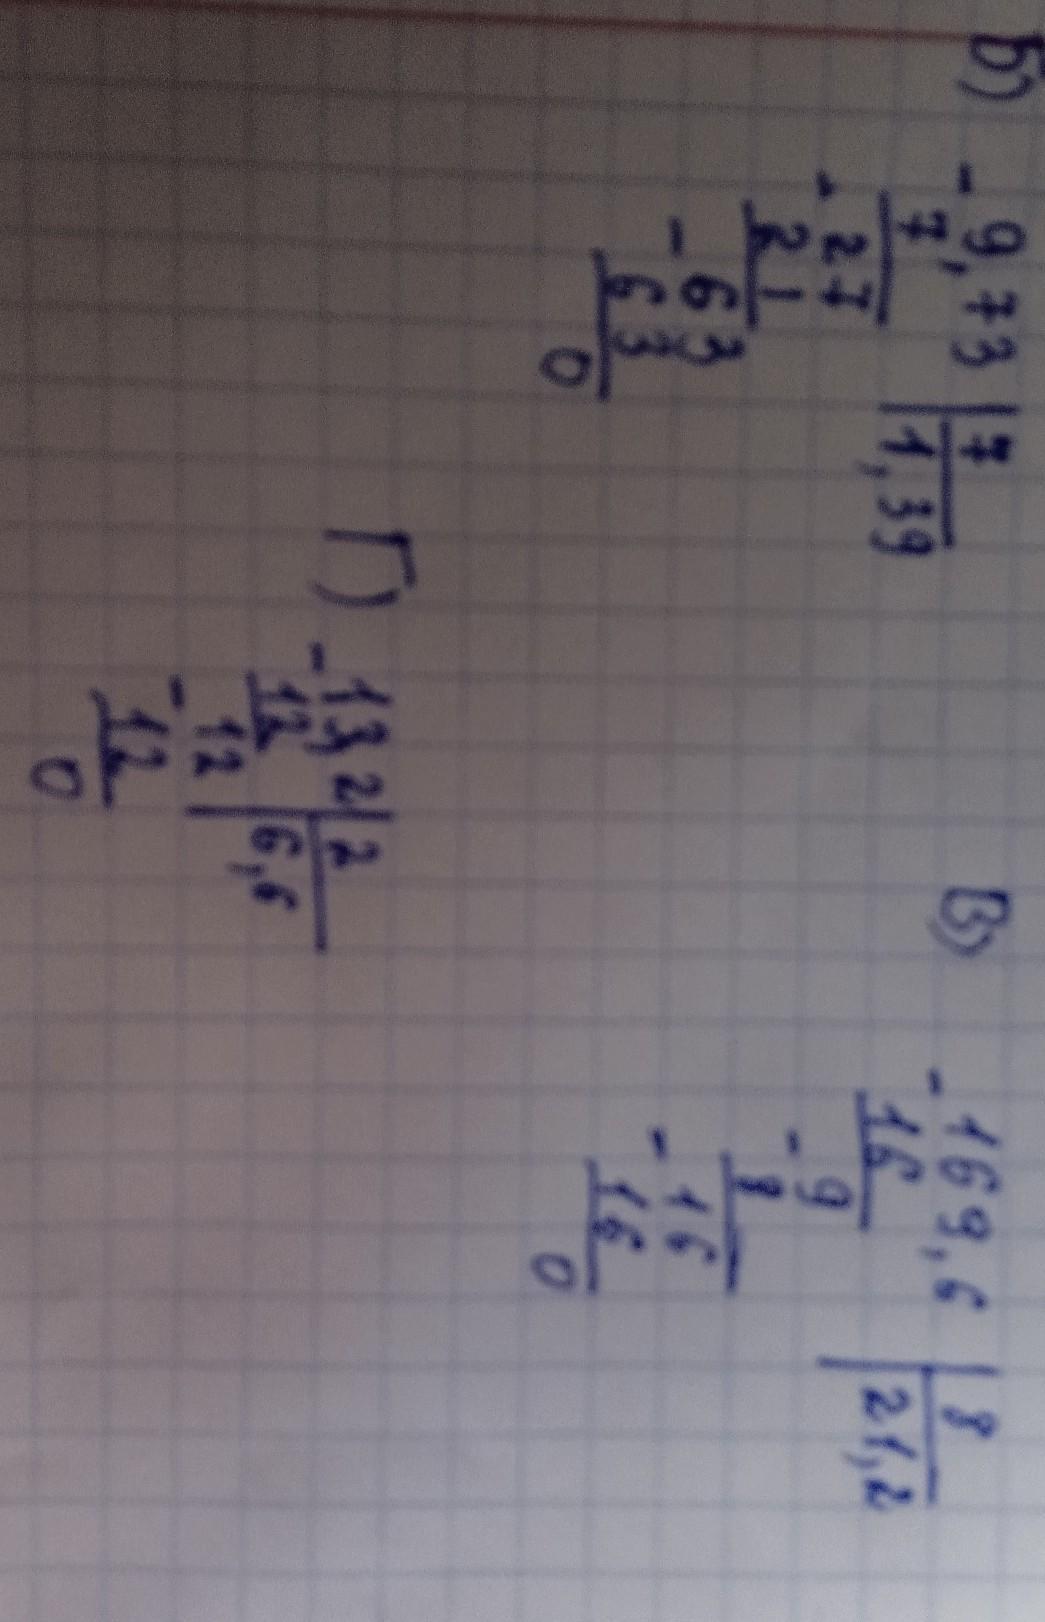 Б) - 9,73 | 7
7 | 1,39
- 27
21
- 63
63
0
В) - 169,6 | 8
16 | 21,2
- 9
8
- 16
16
0
Г) - 13,2 | 2
12 | 6,6
- 12
12
0